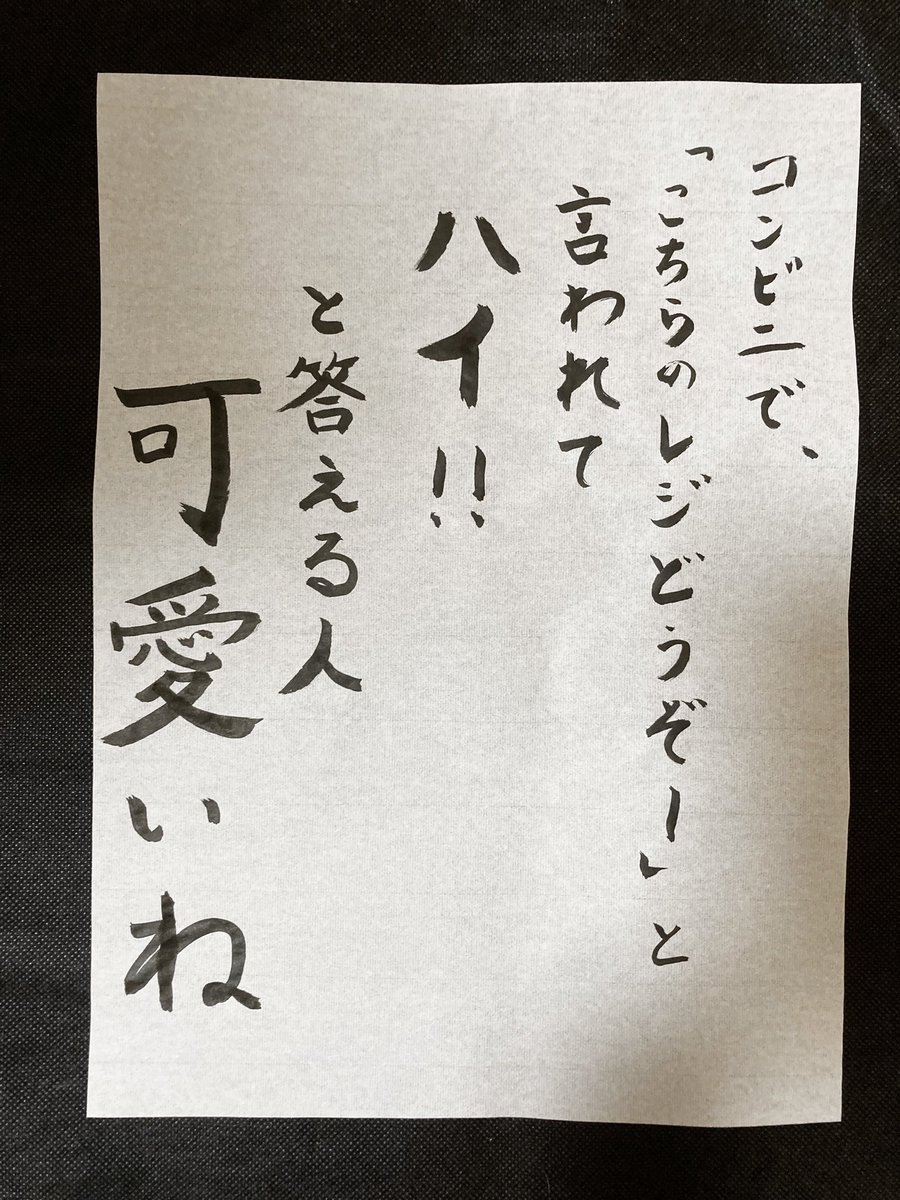 コンビニで、
「こちらのレジどうぞー」と
言われて
ハイ!!
と答える人
可愛いね